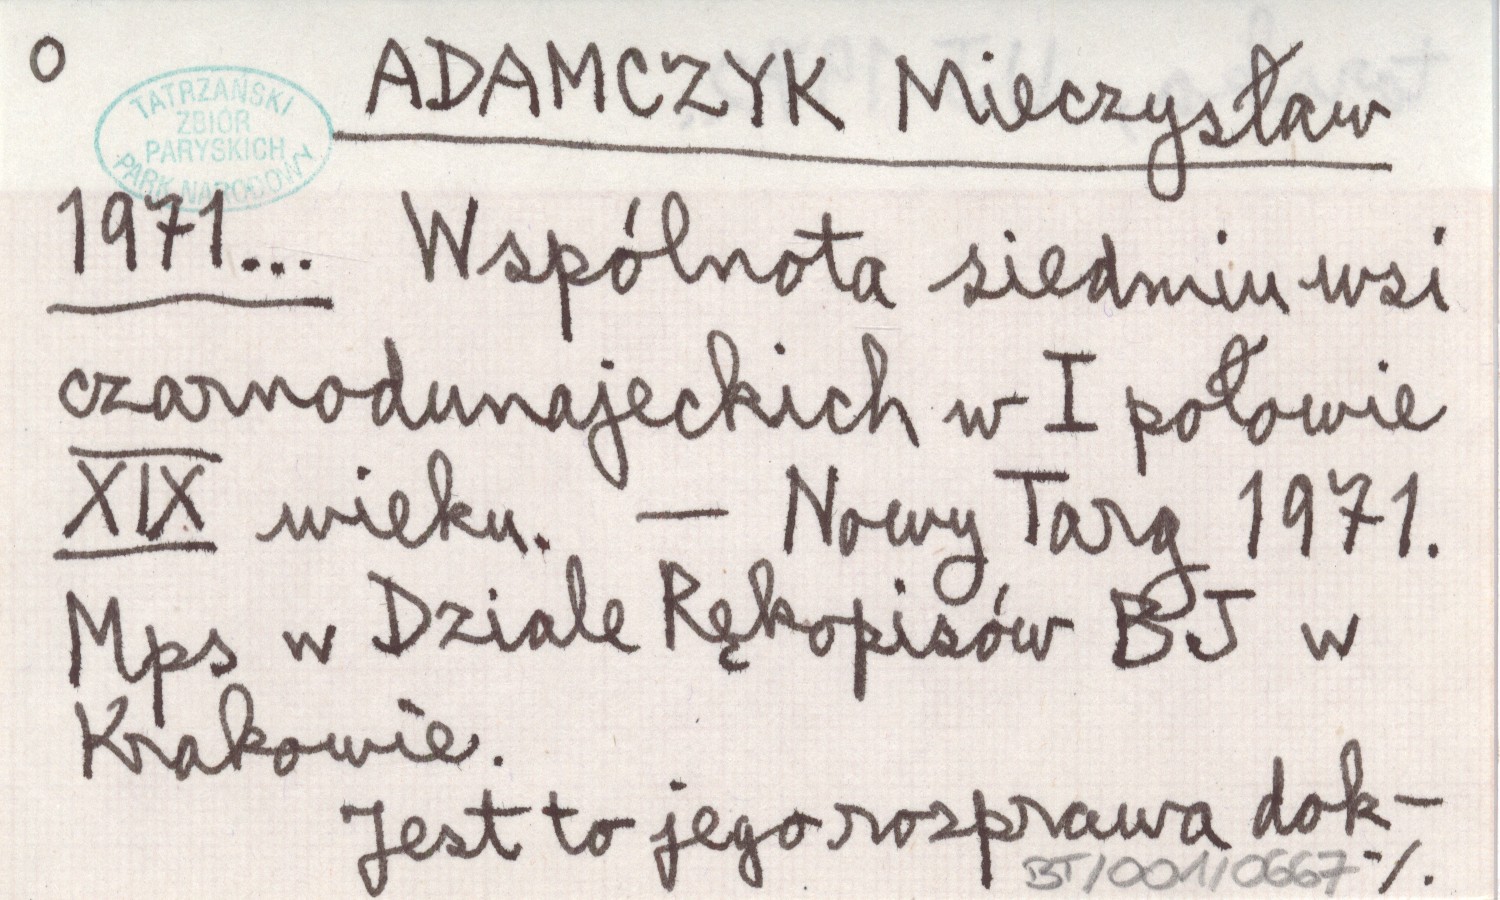 O ADAMCZYK Mieczysław
TATRZAŃSKI
ZBIÓR
PARYSKICH
PARK NARODOWY
1971... Wspólnota siedmiu wsi
czarnodunajeckich w I połowie
XIX wieku. — Nowy Targ 1971.
Mps w Dziale Rękopisów BJ w
Krakowie.
Jest to jego rozprawa dok-
BT/001/0667 -/.